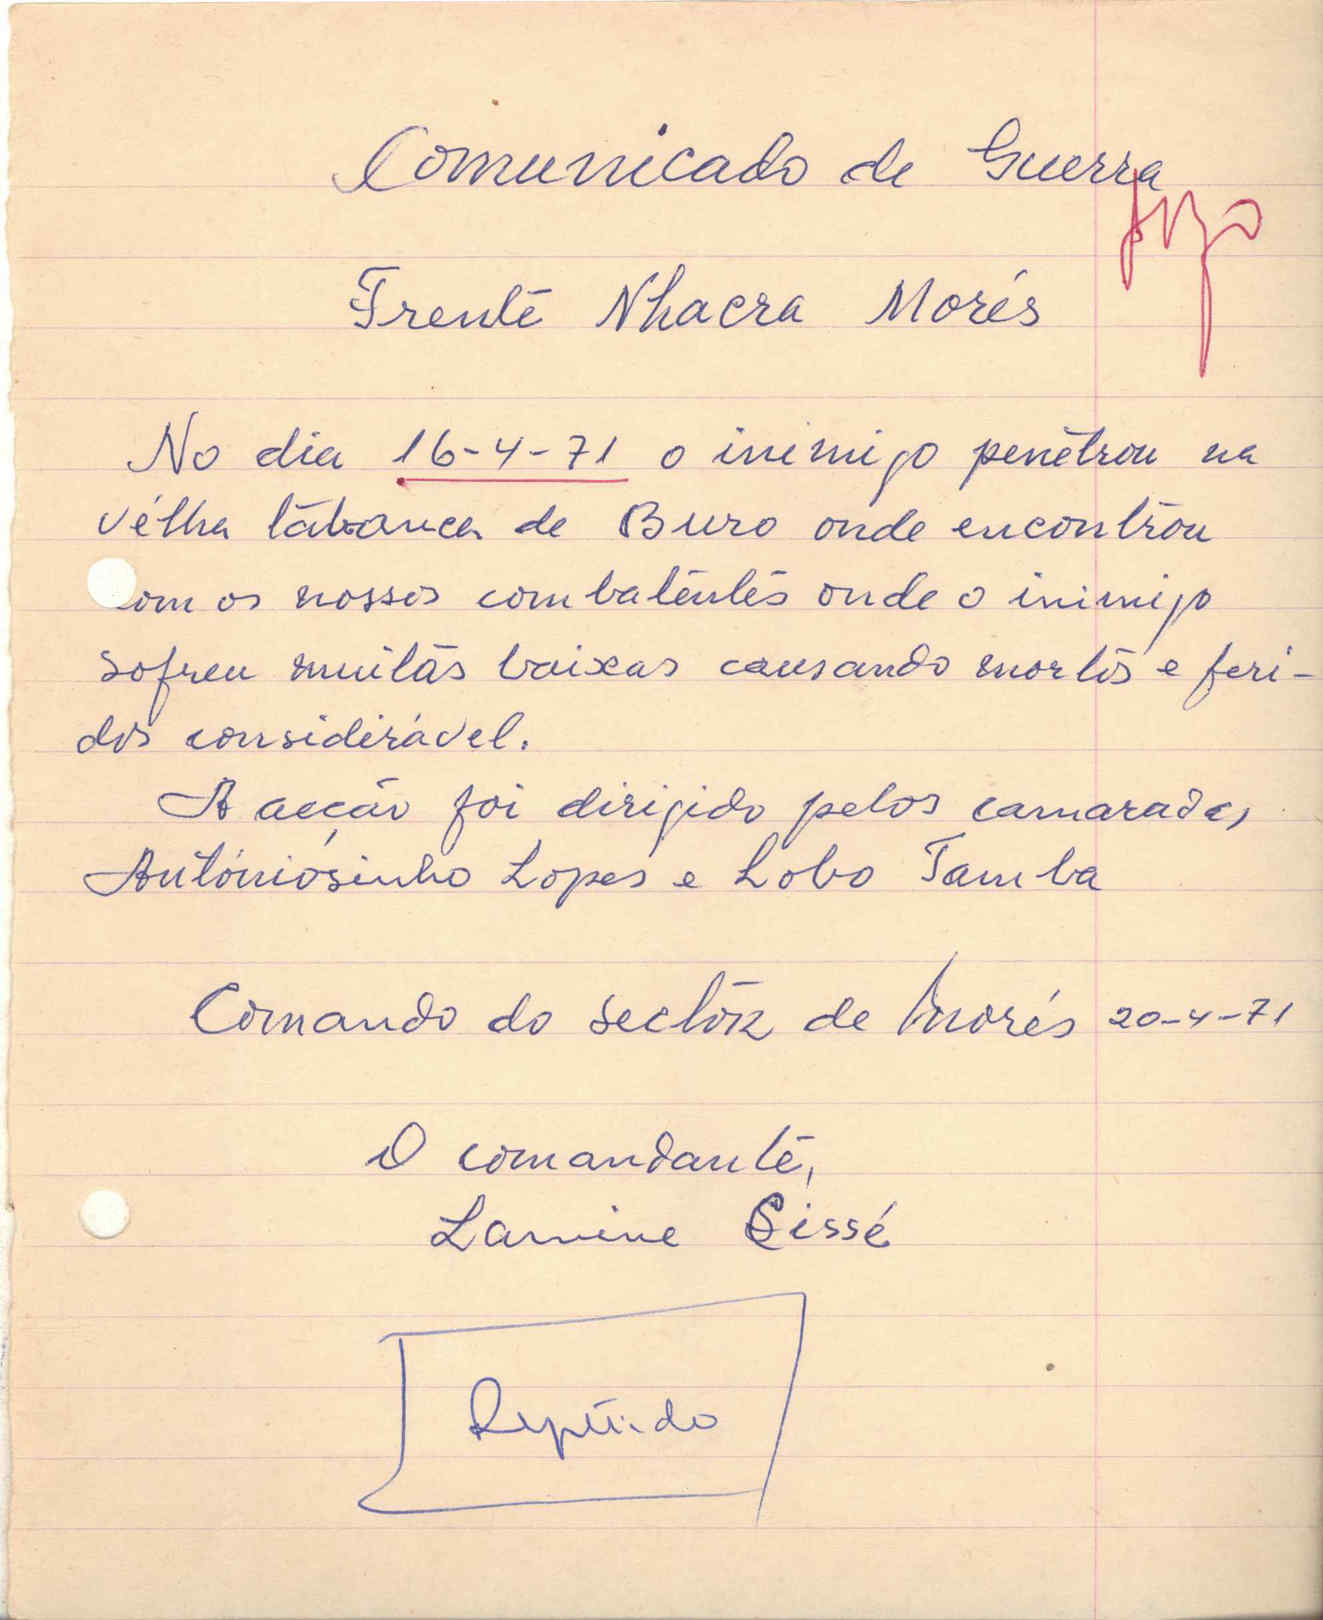 Comunicado de Guerra
Frente Nhacra Morés
No dia 16-4-71 o inimigo penetrou na
vélha tabanca de Buro onde encontrou
com os nossos combatentes onde o inimigo
sofreu muitas baixas causando mortos e feri-
dos considirável.
A acção foi dirigido pelos camaradas
Antóniosinho Lopes e Lobo Tamba
Comando do sectôr de Morés 20-4-71
O comandante,
Lamine Sissé
Repetido